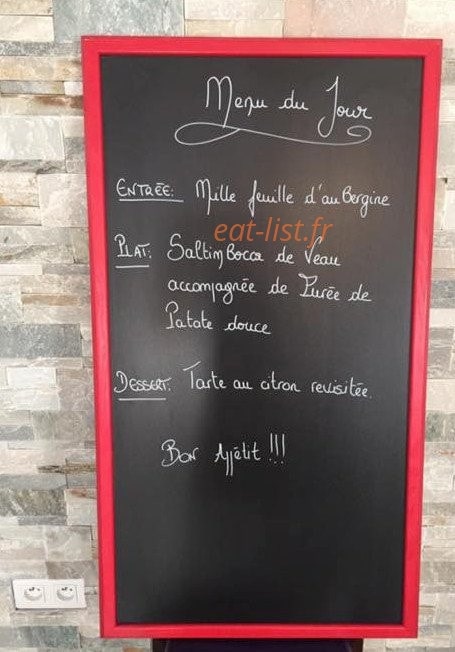 Menu du Jour
ENTRÉE: Mille feuille d'aubergine
eat-list.fr
PLAT: Saltimbocca de Veau
accompagnée de Purée de
Patate douce
DESSERT: Tarte au citron revisitée.
Bon Appétit !!!